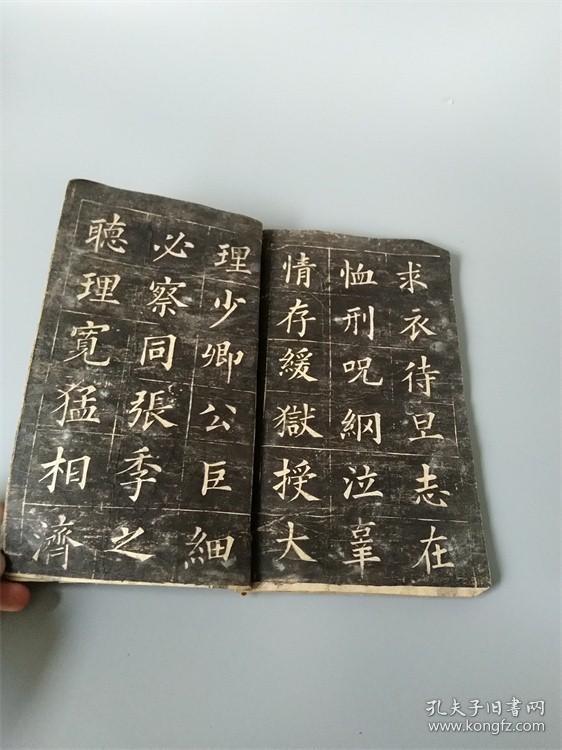 求衣待旦志在
恤刑呪網泣辠
情存緩獄授大
理少卿公巨細
必察同張季之
聴理寛猛相濟
孔夫子旧书网
www.kongfz.com